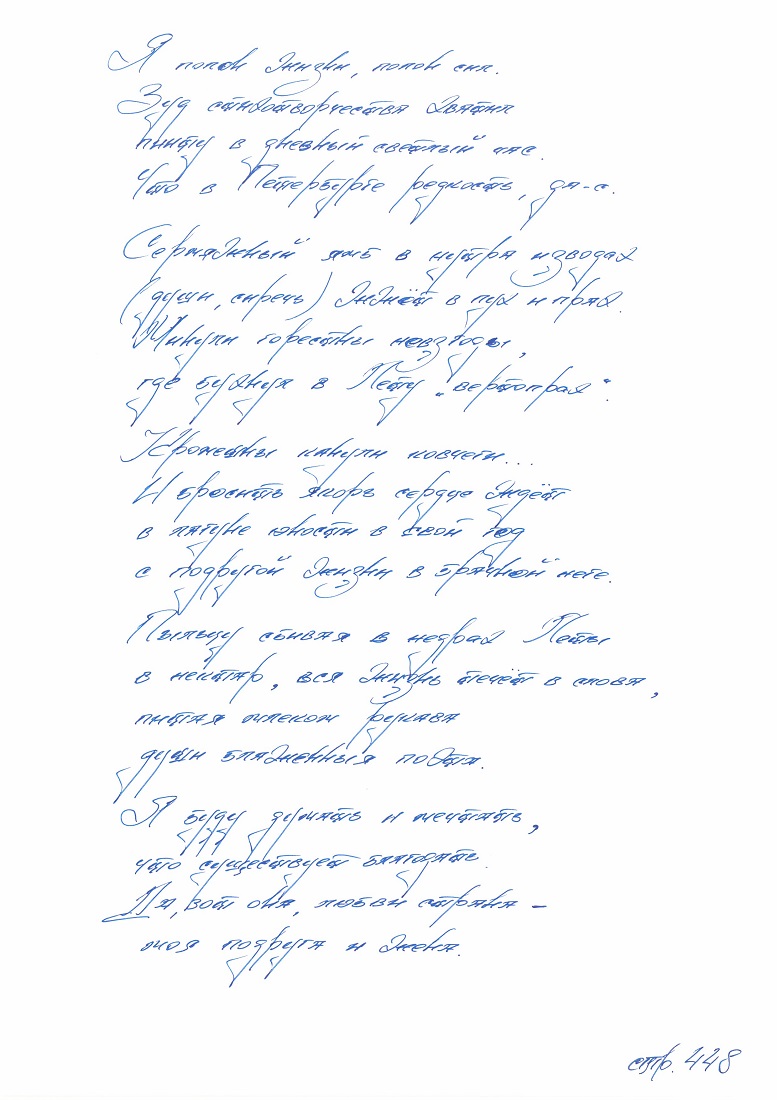 Я полон жизни, полон сил.
Зуд стихотворчества хватил
пииту в дневный светлый час.
Что в Петербурге редкость, да-с.
Сермяжный ямб в нутра изводах
(души, сиречь) жжёт в пух и прах.
Минули горестны невзгоды,
где бухнул в Лету „вертопрах“.
Крομешны канули ковчеги...
И бросить якорь сердце ждёт
в лагуне юности в свой год
с подругой жизни в брачной неге.
Пыльцу сбивая в недрах Леты
в нектар, вся жизнь течёт в слова,
питая млеком рукава
души блаженныя поэта.
Я буду думать и мечтать,
что существует благодать.
Да, вот она, любви страна –
моя подруга и жена.
стр. 448